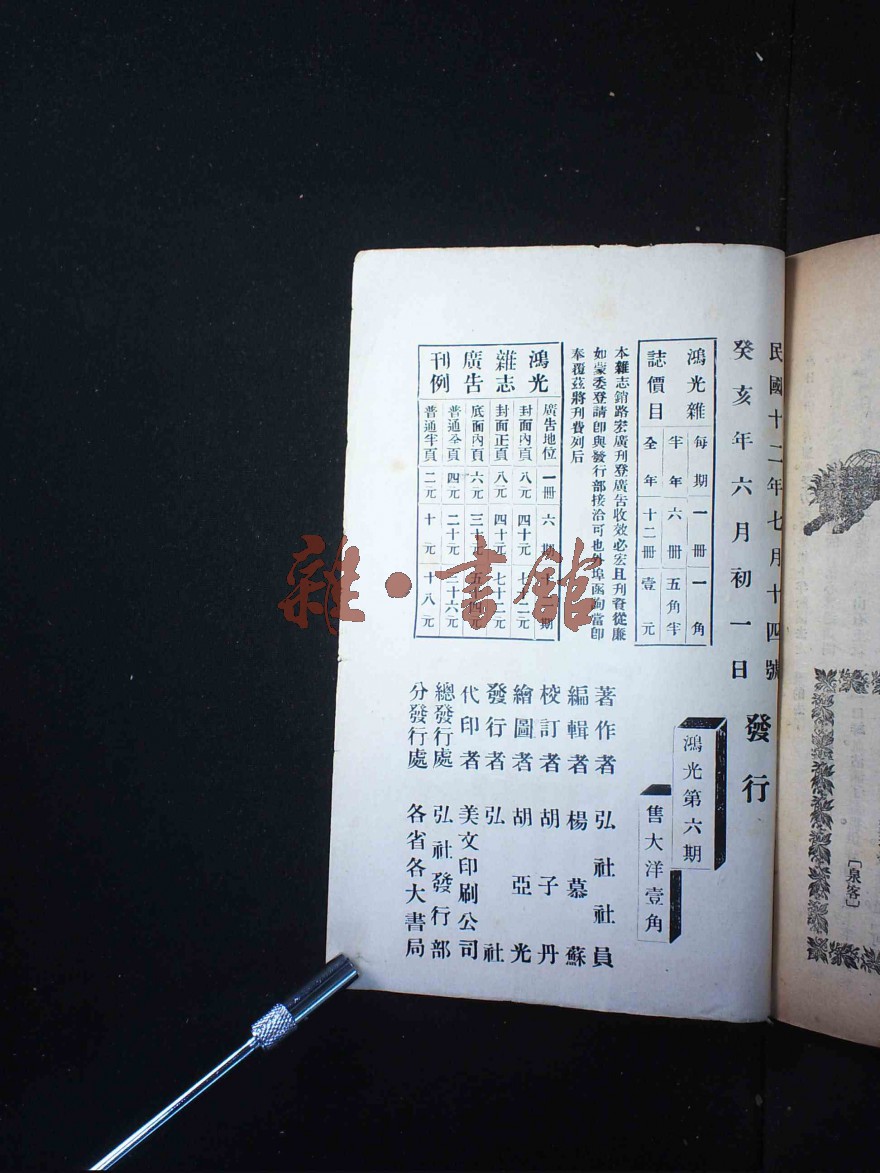 民國十二年七月十四號
癸亥年六月初一日
發行
鴻光第六期
售大洋壹角
鴻光雜誌價目
每期 一冊 一角
半年 六冊 五角半
全年 十二冊 壹元
本雜志銷路宏廣刊登廣告收效必宏且刊費從廉
如蒙委登請卽與發行部接洽可也外埠函詢當卽
奉覆茲將刊費列后
鴻光雜志廣告刊例
廣告地位 一冊 六期 十二期
封面內頁 八元 四十元 七十二元
封面正頁 八元 四十元 七十二元
底面內頁 六元 三十元 五十四元
普通全頁 四元 二十元 三十六元
普通半頁 二元 十元 十八元
著作者 弘社社員
編輯者 楊慕蘇
校訂者 胡子丹
繪圖者 胡亞光
發行者 弘社
代印者 美文印刷公司
總發行處 弘社發行部
分發行處 各省各大書局
雜·書館
[泉客]